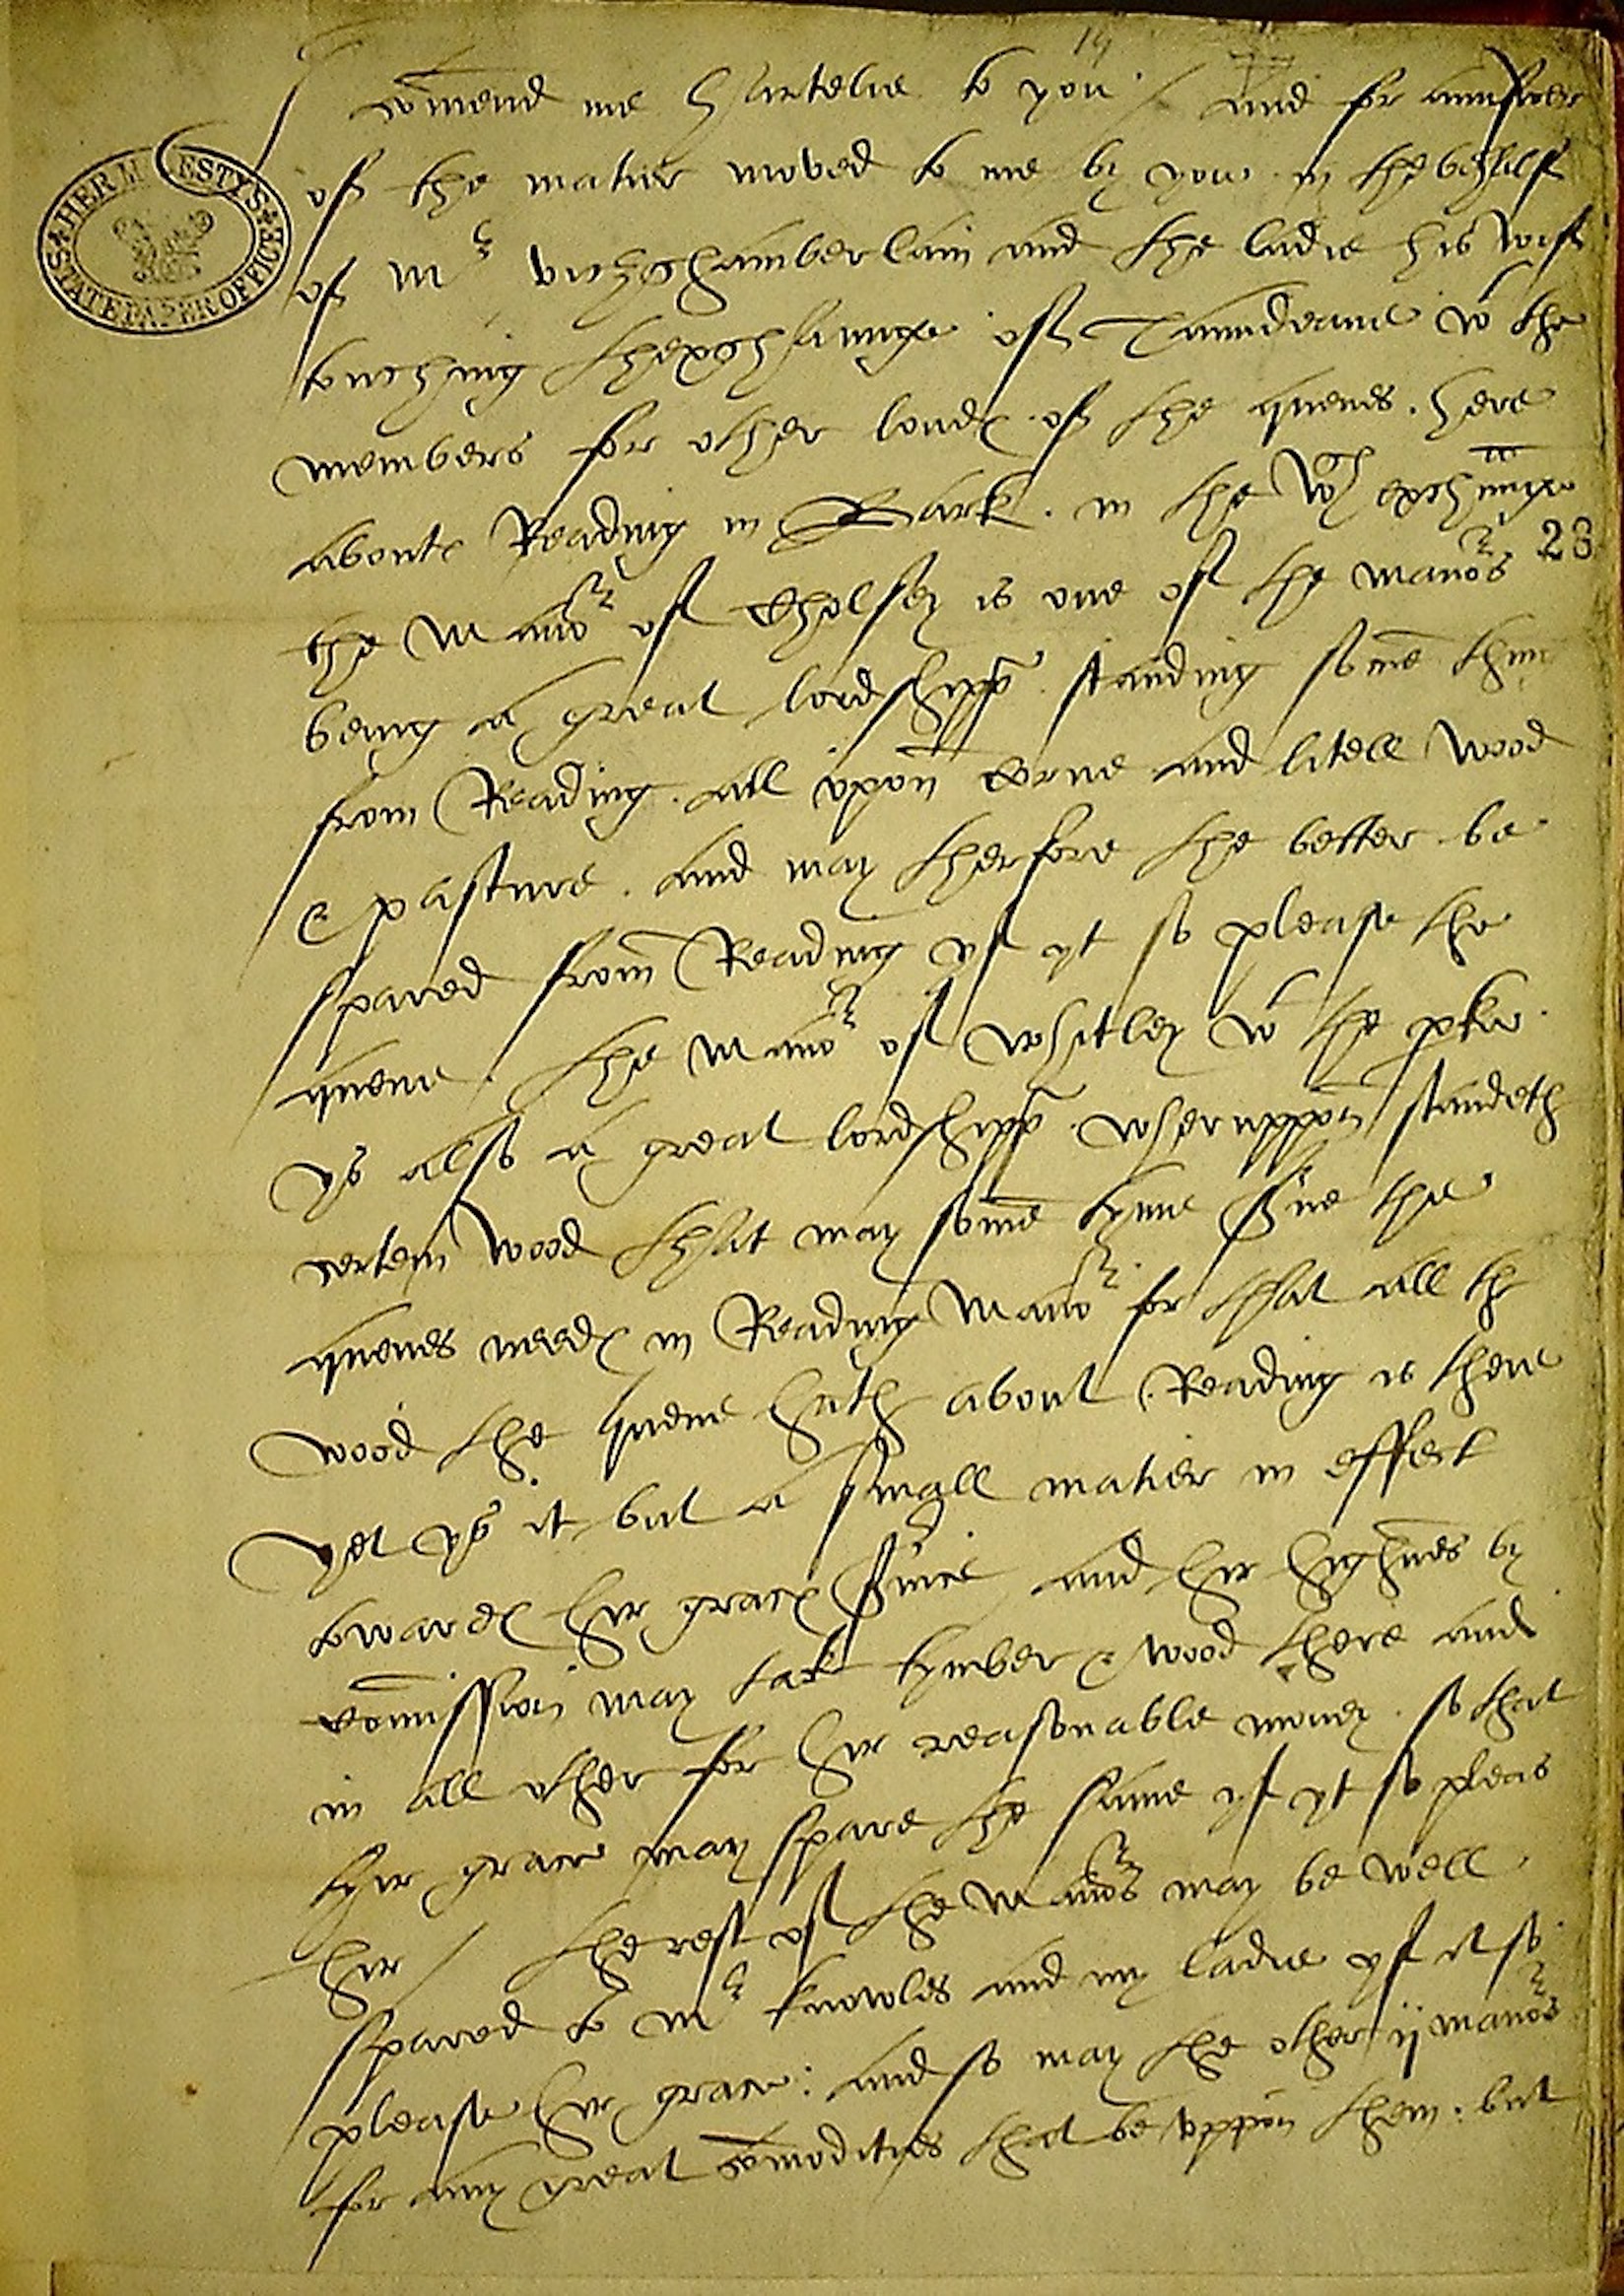 14
I cōmend me hartelie to you / And for aunswer
of the matier moved to me by you in the behalf
of Mr vichechamberlain and the ladie his wif
touching thexchaunge of Taundeane wt the
members for other londes of the quenes . here
aboute Reading in Bark . in the wch exchaunge
the Manor of Cholsey is one of the manors
28
being a great lordshipp . standing some thing
from Reading . all upon corne and litell wood
& pasture . and may therfore the better be
spared from Reading yf yt so please the
quene . the Manor of Whitley wt the pke
ys also a great lordshipp . wheruppon standeth
certein wood that may some tyme s̄ve the
quenes needes in Reading Manor for that all the
wood the quene hath about Reading is there
yet ys it but a small matier in effect
towardes hir graces s̄vice and hir highnes by
cōmission may take tymber & wood there and
in all other for hir reasonable money . so that
hir grace may spare the same yf yt so pleas
hir / the rest of the Manors may be well
spared to Mr knowles and my ladie yf it so
please hir grace : and so may the other ij manors
for any great cōmodities that be uppon them : but
HER MAJESTYS
STATE PAPER OFFICE